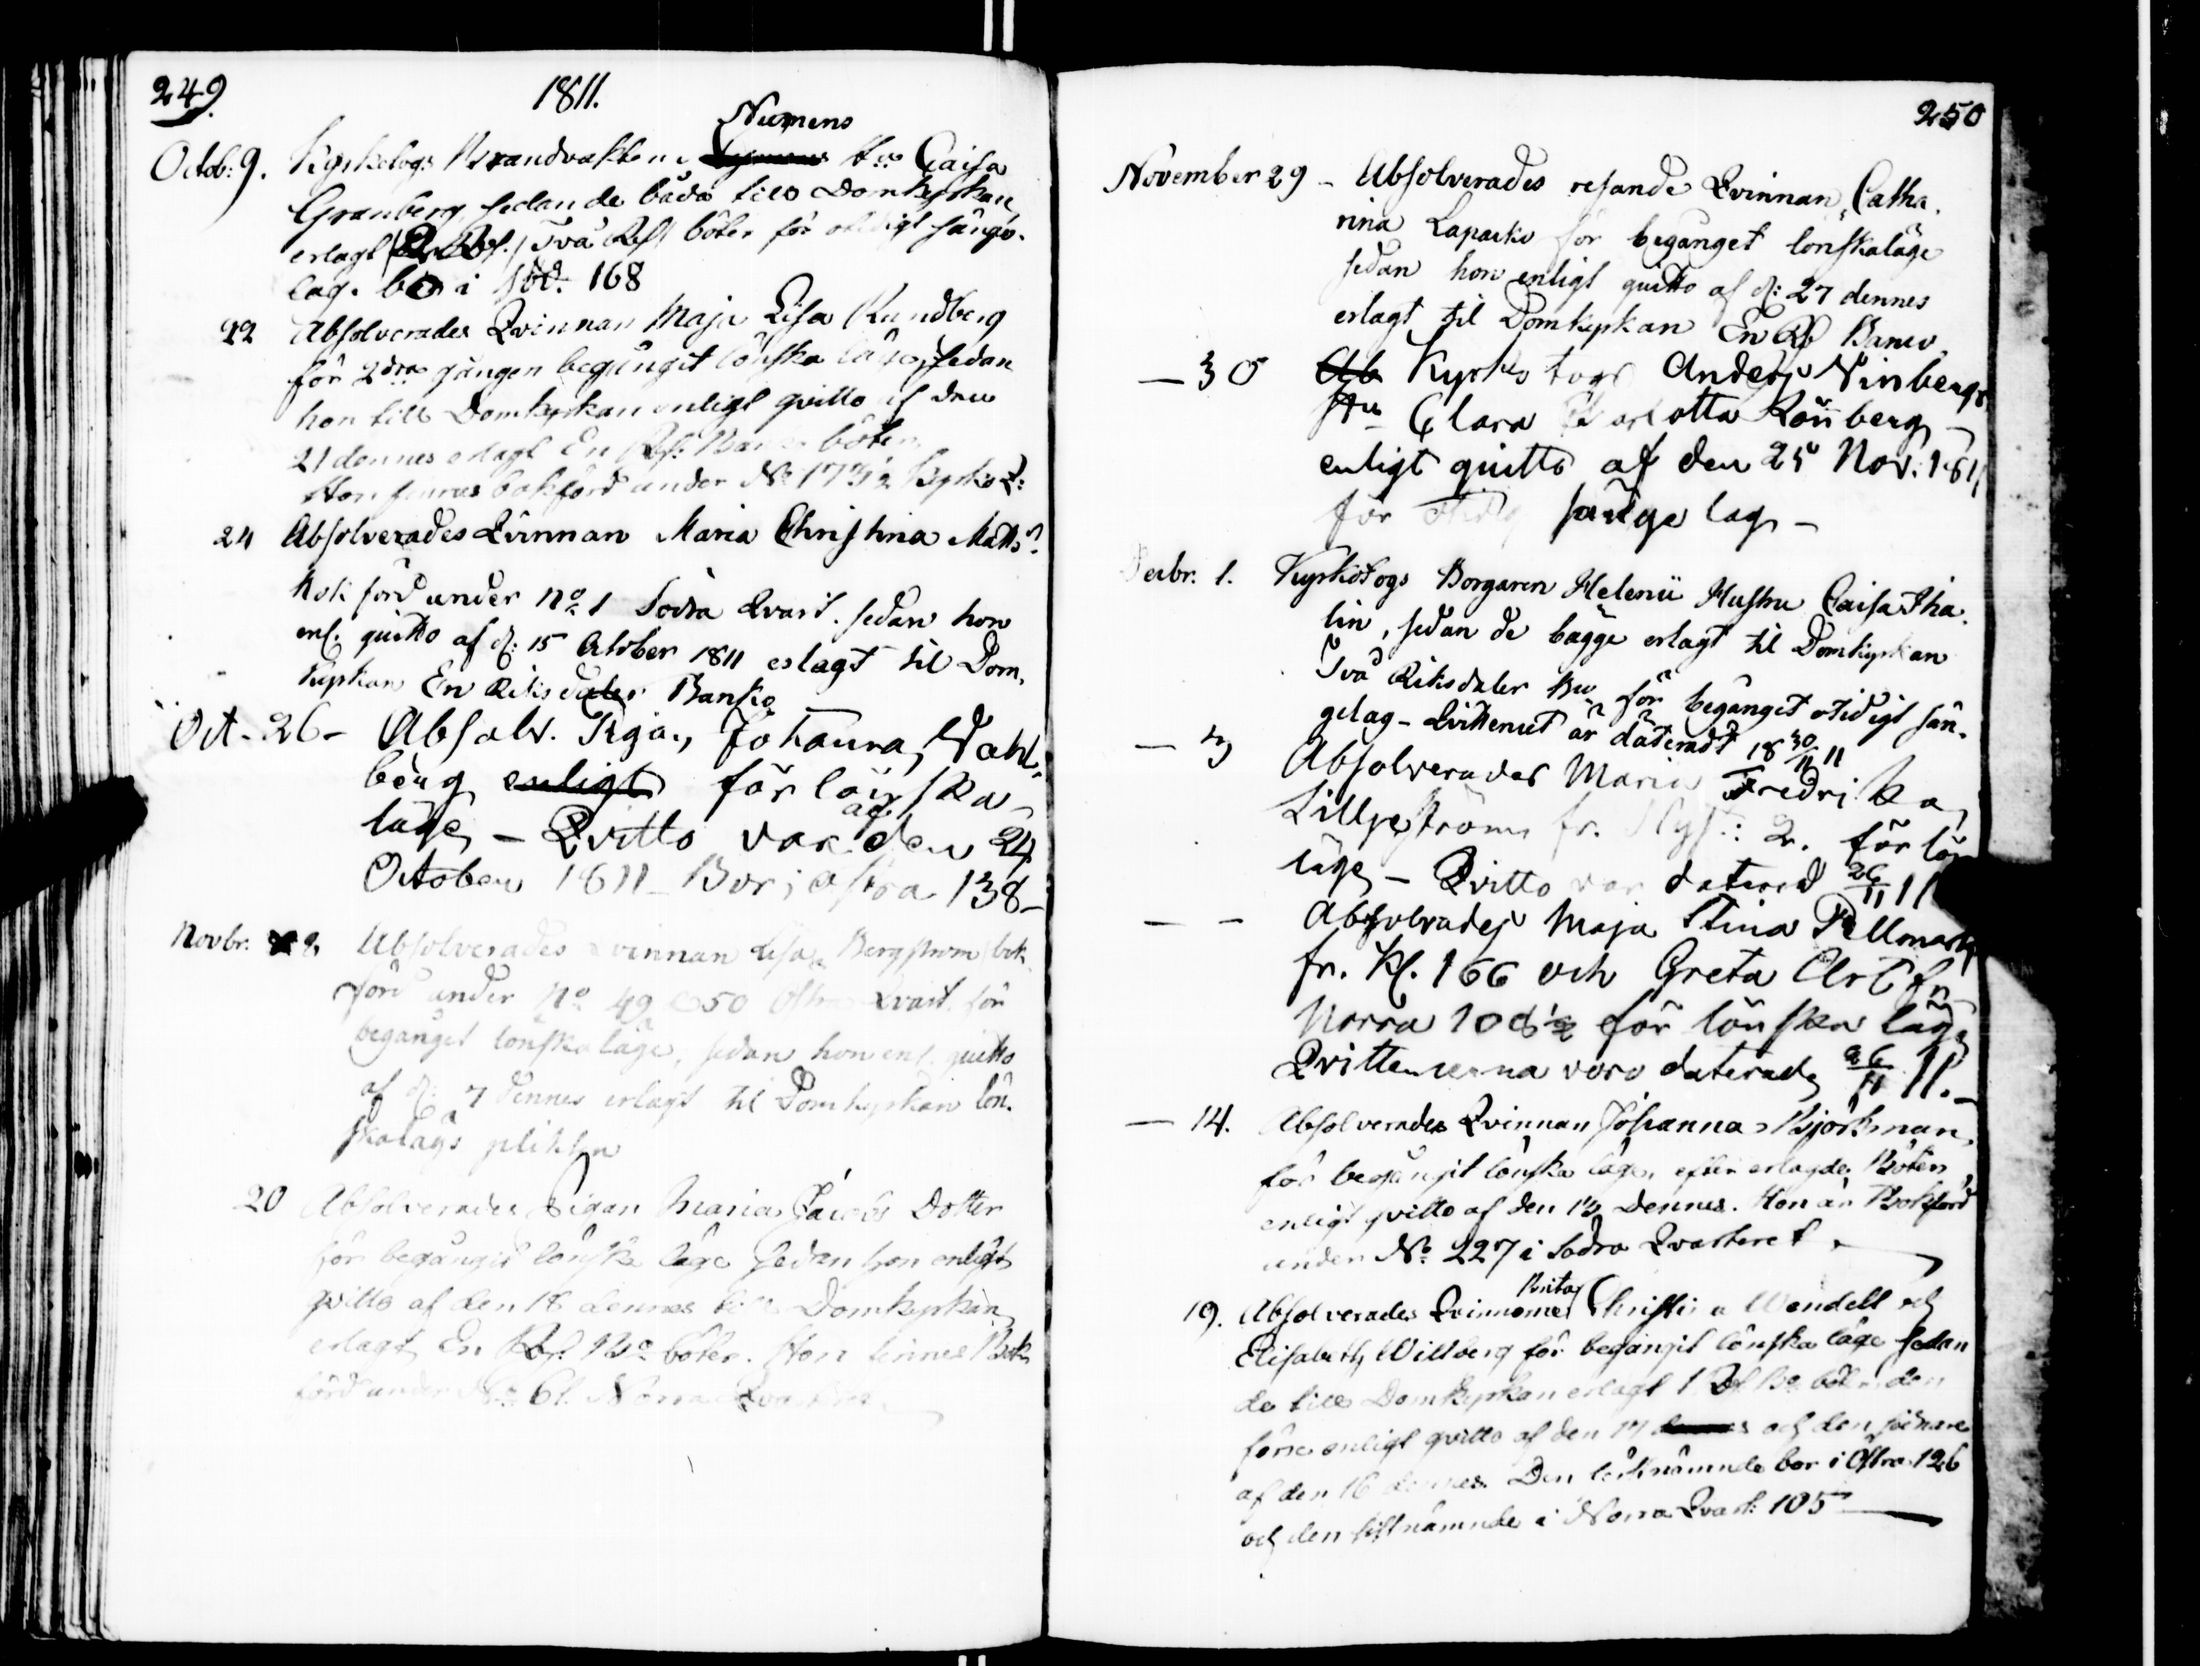 249
1811.
Numens
Octob: 9. Kyrkotogs Brandvakten Hu Caisa
Granberg, sedan de båda till Domkyrkan
erlagt Två Rd böter för otidigt sänge-
lag. bo i Söd. 168
22 Absolverades Qvinnan Maja Lisa Rundberg
för 2dra gången begånget lönska läge, sedan
hon till Domkyrkan enligt qvitto af den
21 dennes erlagt En Rd: Banco böter.
Hon finnes bokförd under No 173½ Kyrko Q:
24 Absolverades Qvinnan Maria Christina Matts
Bokförd under No 1 Södra Qvart. sedan hon
enl. quitto af d: 15 October 1811 erlagt til Dom-
kyrkan En Riksdaler Banko
Oct. 26 - Absolv. Pigan Johanna Wahl-
berg enligt för lönska
läge - Qvitto var af den 24
October 1811 - Bor i Östra 138 -
Novbr. 8 Absolverades qvinnan Lisa Bergström bok-
förd under No 49 & 50 Östra Qvart. för
begånget lönskaläge, sedan hon enl. quitto
af d: 7 dennes erlagt til Domkyrkan lön-
skalägs plikten
20 Absolverades Pigan Maria Jacobs Dotter
för begångit lönska läge sedan hon enligt
qvitto af den 18 dennes till Domkyrkan
erlagt En Rd. Bo böter. Hon finnes Bok-
förd under No 61. Norra Qvarteret
250
November 29 - Absolverades resande Qvinnan Catha-
rina Lapacko för begånget lonskaläge
sedan hon enligt quitto af d: 27 dennes
erlagt til Domkyrkan En Rd Banco.
- 30 Ab Kyrkotogs Anders Winbergs
Hu Clara Charlotta Rönnberg -
enligt quitto af den 25 Nov: 1811
för otidig sänge lag -
Decbr. 1. Kyrkotogs Borgaren Helenii Hustru Caisa Tha-
lin, sedan de bägge erlagt til Domkyrkan
Två Riksdaler Bco för begånget otidigt sän-
gelag - Qvittencet är dateradt 18 30/11 11
- 3 Absolverades Maria Fredrika
Lilljeström fr. Kyrk: Q. för lön
läge - Qvitto var daterad 26/11 11
- - Absolverades Maja Stina Pellmark
fr. Kl. 166 och Greta Art fr
Norra 108½ för lönska läge
Qvittencerna voro daterade 26/11 11. -
- 14. Absolverades Qvinnan Johanna Björkman,
för begångit lönska läge, efter erlagde Böter,
enligt qvitto af den 13 Dennes. Hon är Bokförd
under No 227 i Södra Qvarteret.
Brita
19. Absolverades Qvinnorne Christina Wendell och
Elisabeth Willberg för begångit lönska läge sedan
de till Domkyrkan erlagt 1 Rd Bo böter, den
förre enligt qvitto af den 17 och den sednare
af den 16 dennes. Den förstnämnde bor i Östra 126
och den sistnämnde i Norra Qvart: 105